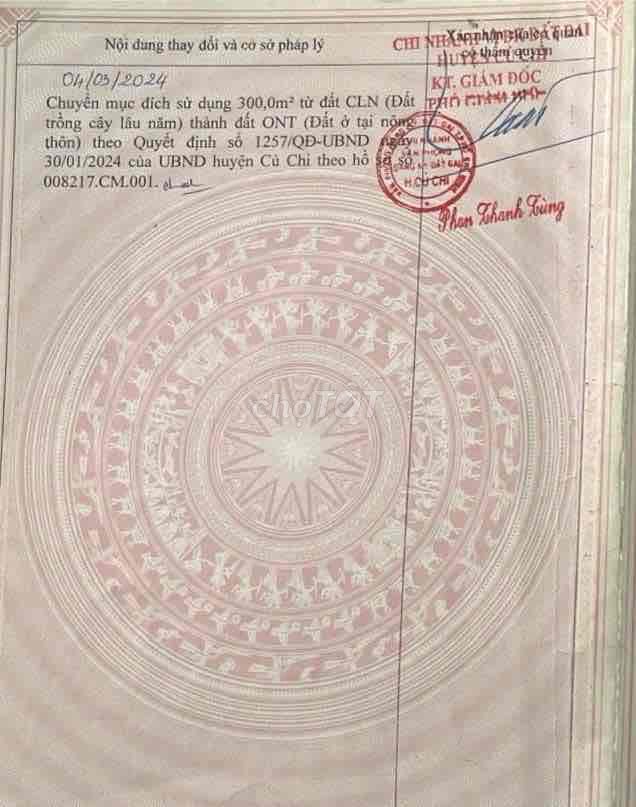 Nội dung thay đổi và cơ sở pháp lý
Xác nhận của cơ quan
có thẩm quyền
CHI NHÁNH ĐẤT ĐAI
HUYỆN CỦ CHI
KT. GIÁM ĐỐC
PHÓ GIÁM ĐỐC
04/03/2024
Chuyển mục đích sử dụng 300,0m² từ đất CLN (Đất
trồng cây lâu năm) thành đất ONT (Đất ở tại nông
thôn) theo Quyết định số 1257/QĐ-UBND ngày
30/01/2024 của UBND huyện Củ Chi theo hồ sơ số
008217.CM.001.
CHI NHÁNH
VĂN PHÒNG
ĐĂNG KÝ ĐẤT ĐAI
H.CỦ CHI
Phan Thanh Tùng
choTỐT